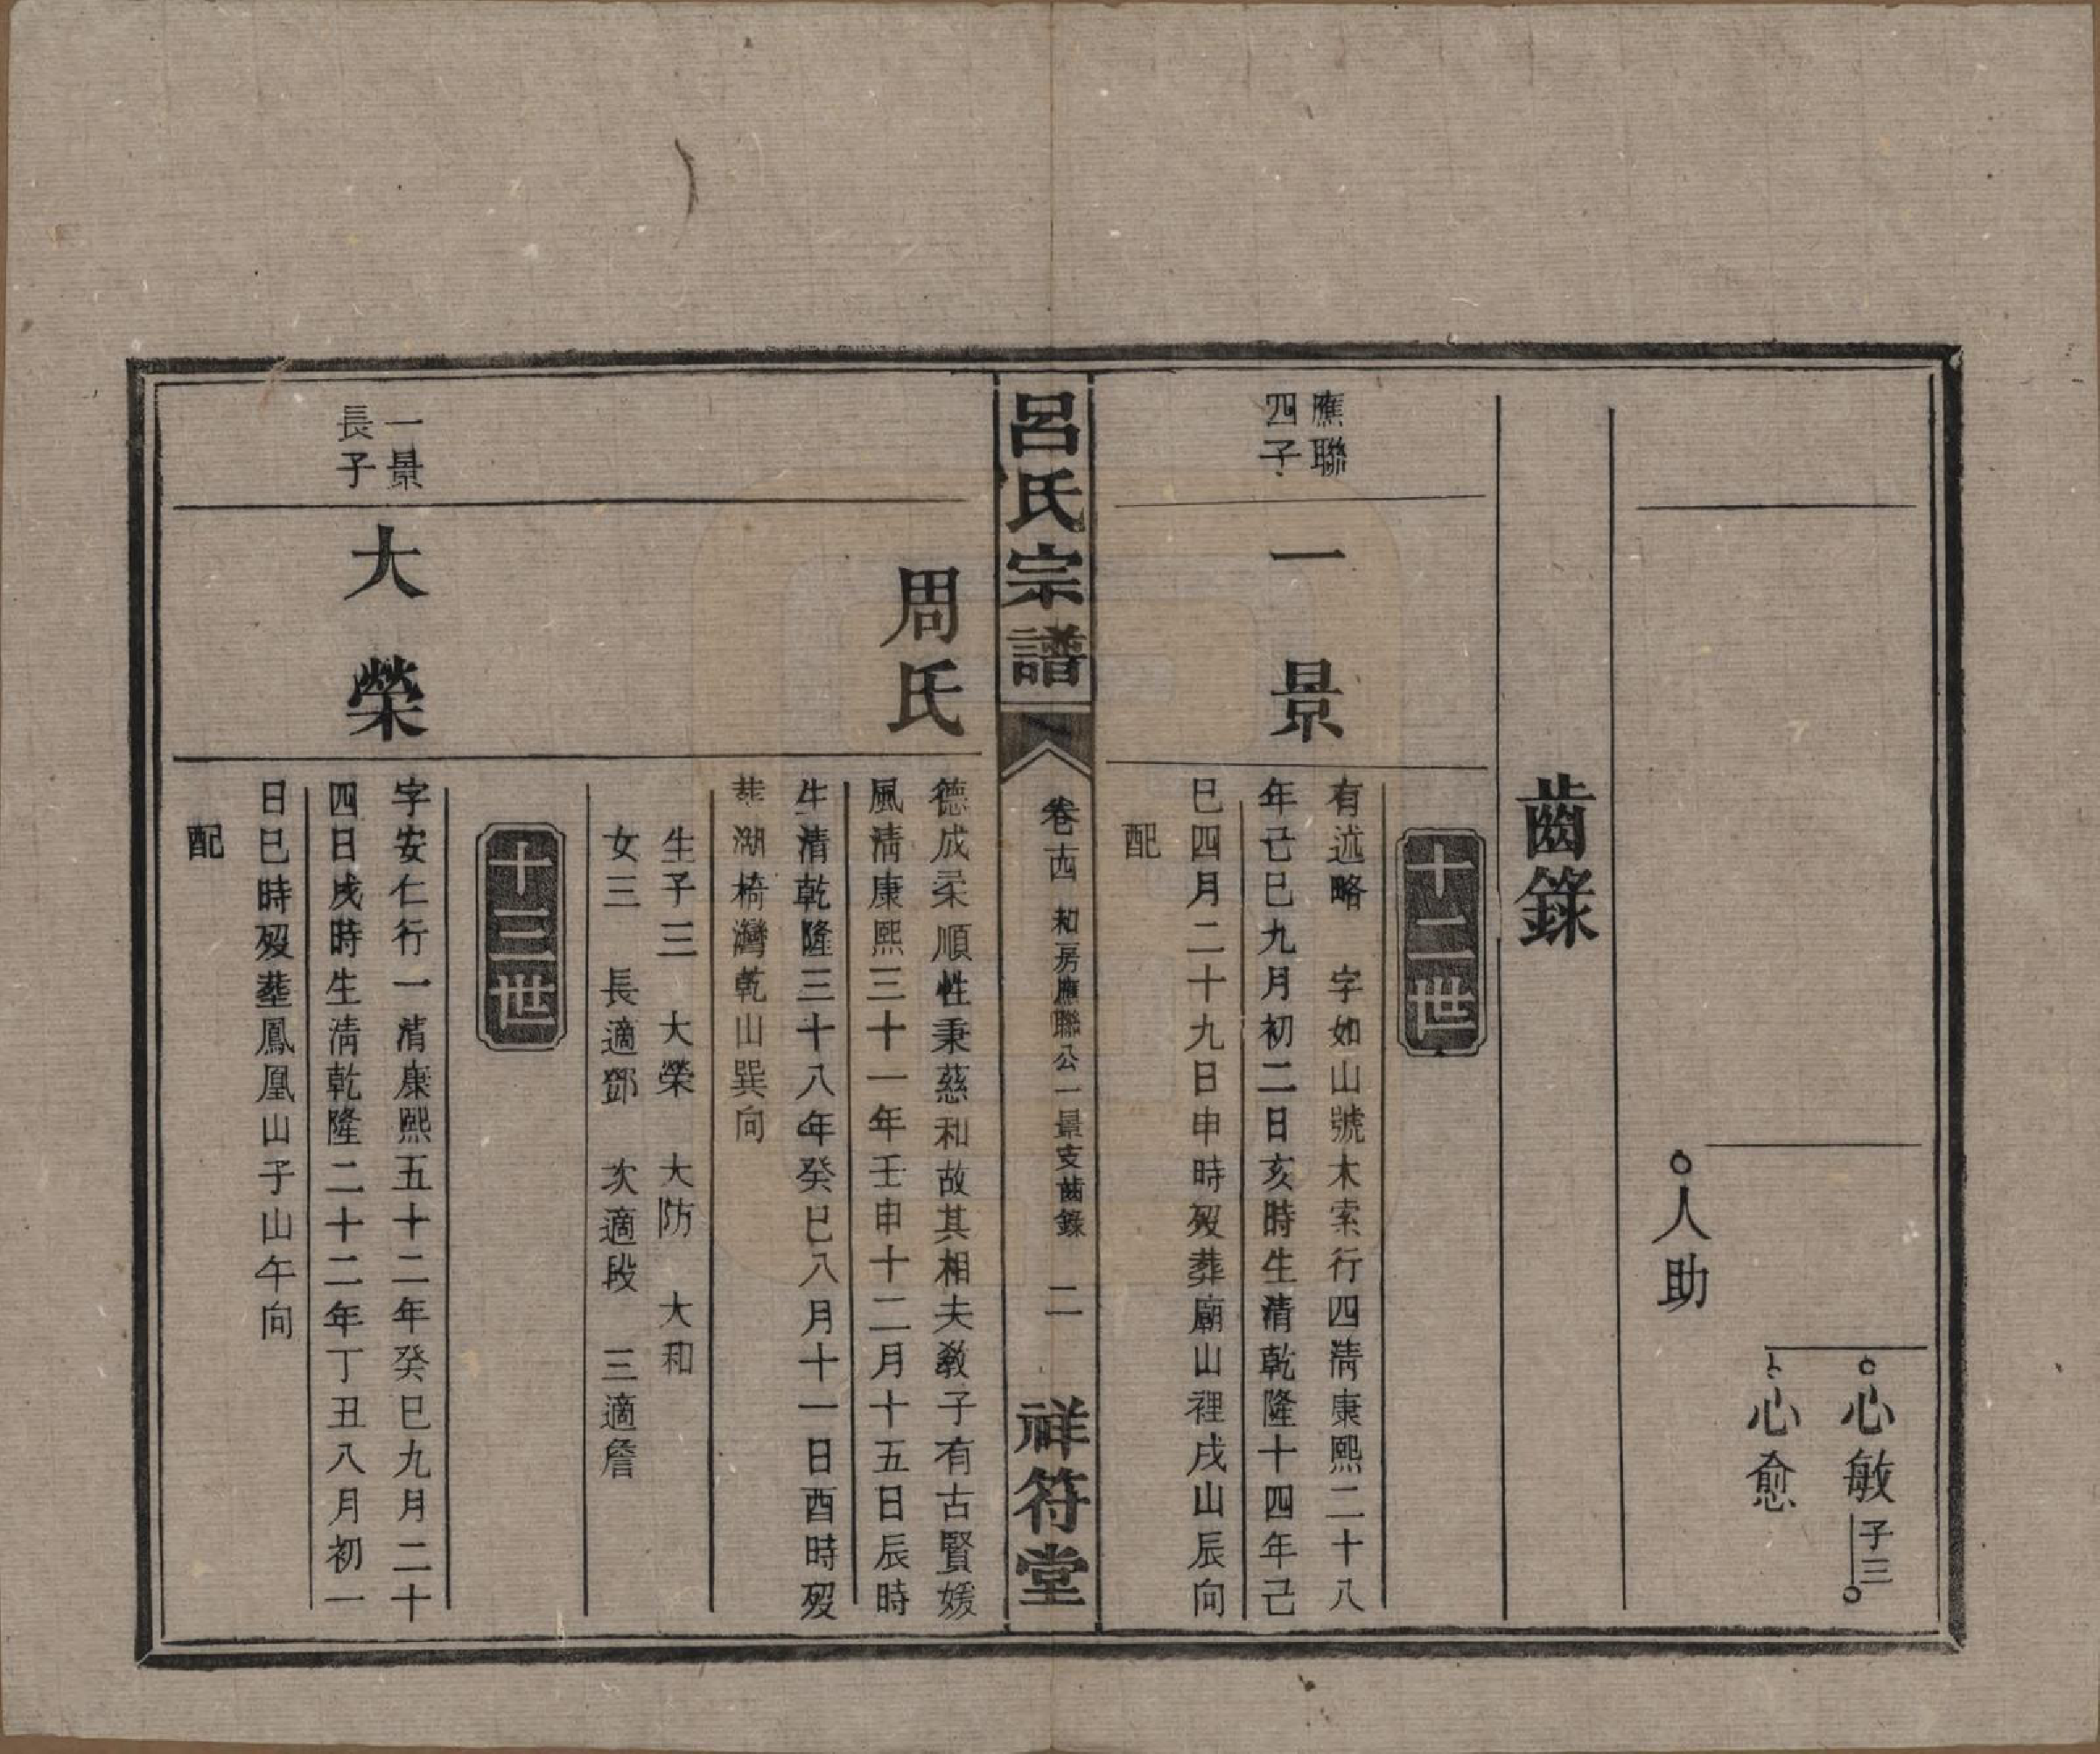 心敏
子三
心愈
人助
齒錄
十二世
應聯
四子
一景
有述略　字如山號木索行四清康熙二十八
年己巳九月初二日亥時生清乾隆十四年己
巳四月二十九日申時歿葬廟山裡戌山辰向
配
呂氏宗譜
卷十四　和房應聯公一景支齒錄　二
祥符堂
周氏
德成柔順性秉慈和故其相夫敎子有古賢媛
風清康熙三十一年壬申十二月十五日辰時
生清乾隆三十八年癸巳八月十一日酉時歿
葬湖椅灣乾山巽向
生子三　大榮　大防　大和
女三　長適鄧　次適段　三適詹
十三世
一景
長子
大榮
字安仁行一清康熙五十二年癸巳九月二十
四日戌時生清乾隆二十二年丁丑八月初一
日巳時歿葬鳳凰山子山午向
配